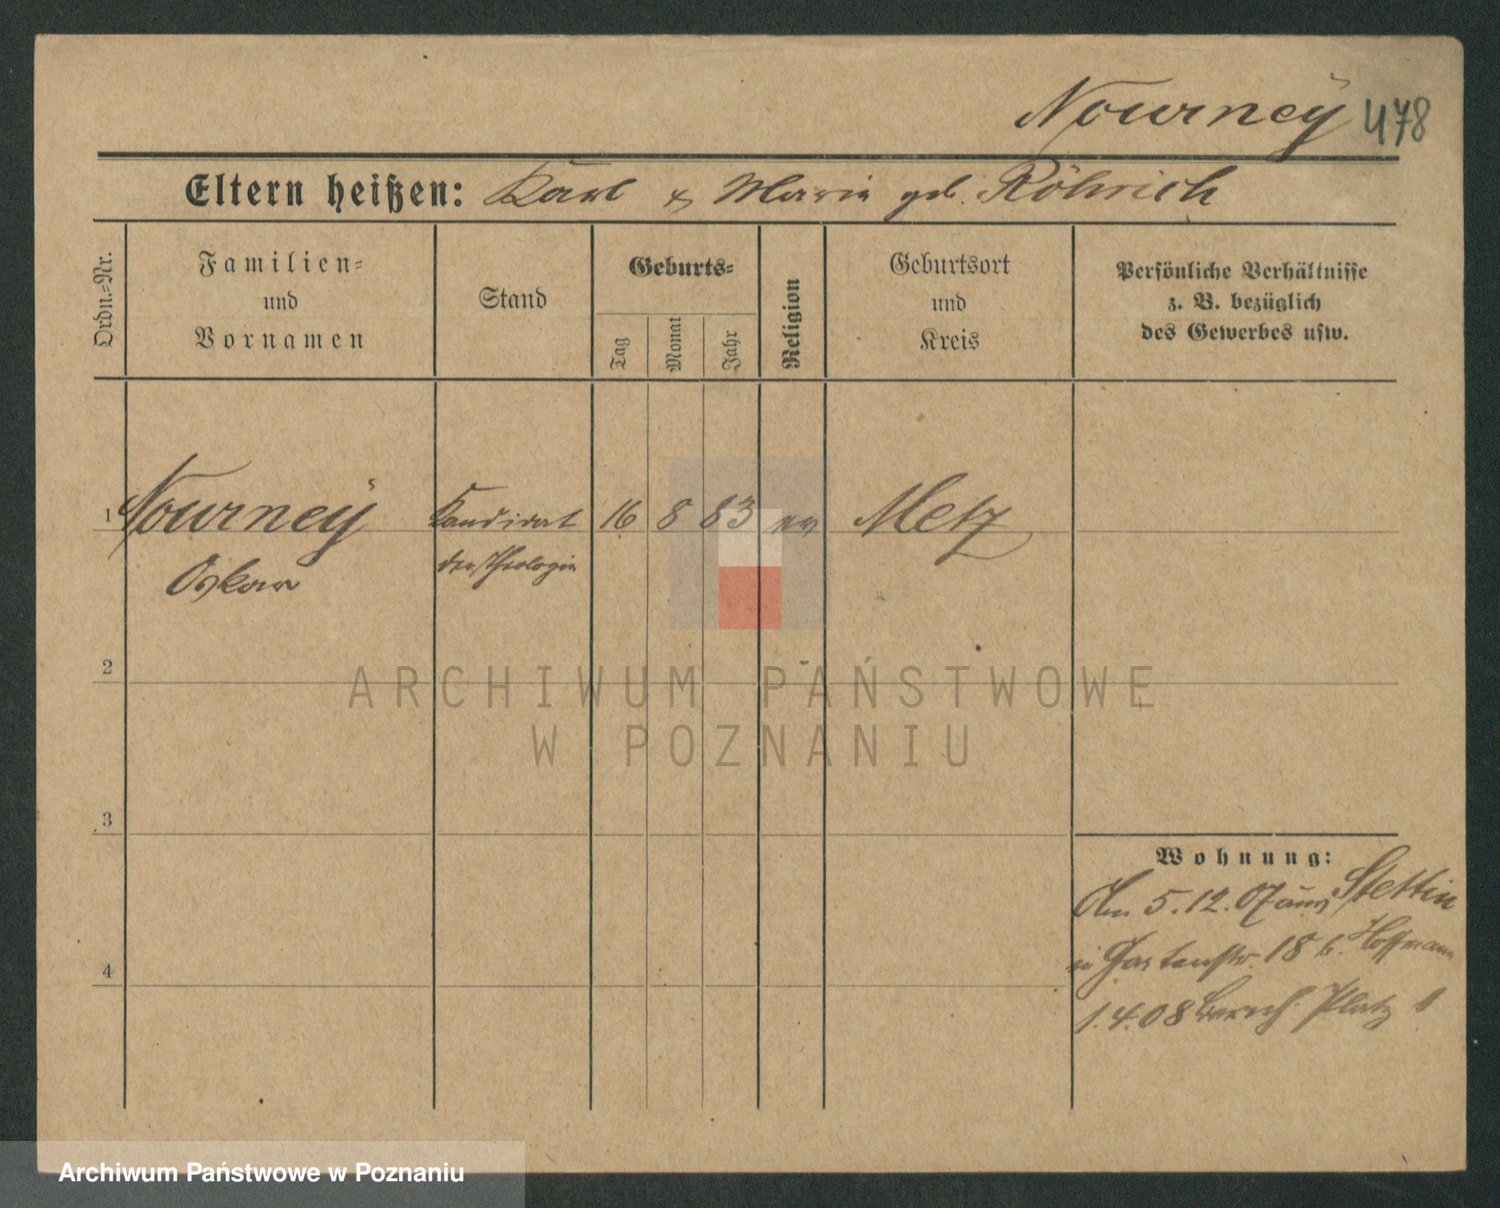 Nourneÿ 478
Eltern heißen: Karl & Maria geb. Röhrich
Ordn.-Nr.
Familien-
und
Vornamen
Stand
Geburts-
Tag
Monat
Jahr
Religion
Geburtsort
und
Kreis
Persönliche Verhältnisse
z. B. bezüglich
des Gewerbes usw.
1 Nourneÿ Kandidat 16 8 83 ev Metz
Oskar der Theologie
2
ARCHIWUM PAŃSTWOWE
W POZNANIU
3
Wohnung:
Am 5.12.07 aus Stettin
in Gartenstr. 18 b. Hoffmann
4
1.4.08 Bernh. Platz 1
Archiwum Państwowe w Poznaniu